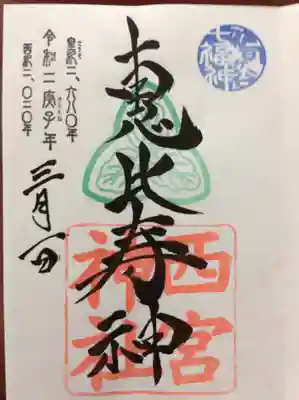 七福神
恵比寿神
西宮
神社
皇紀二、六八〇年
令和二庚子年
西紀二、〇二〇年
三月一日